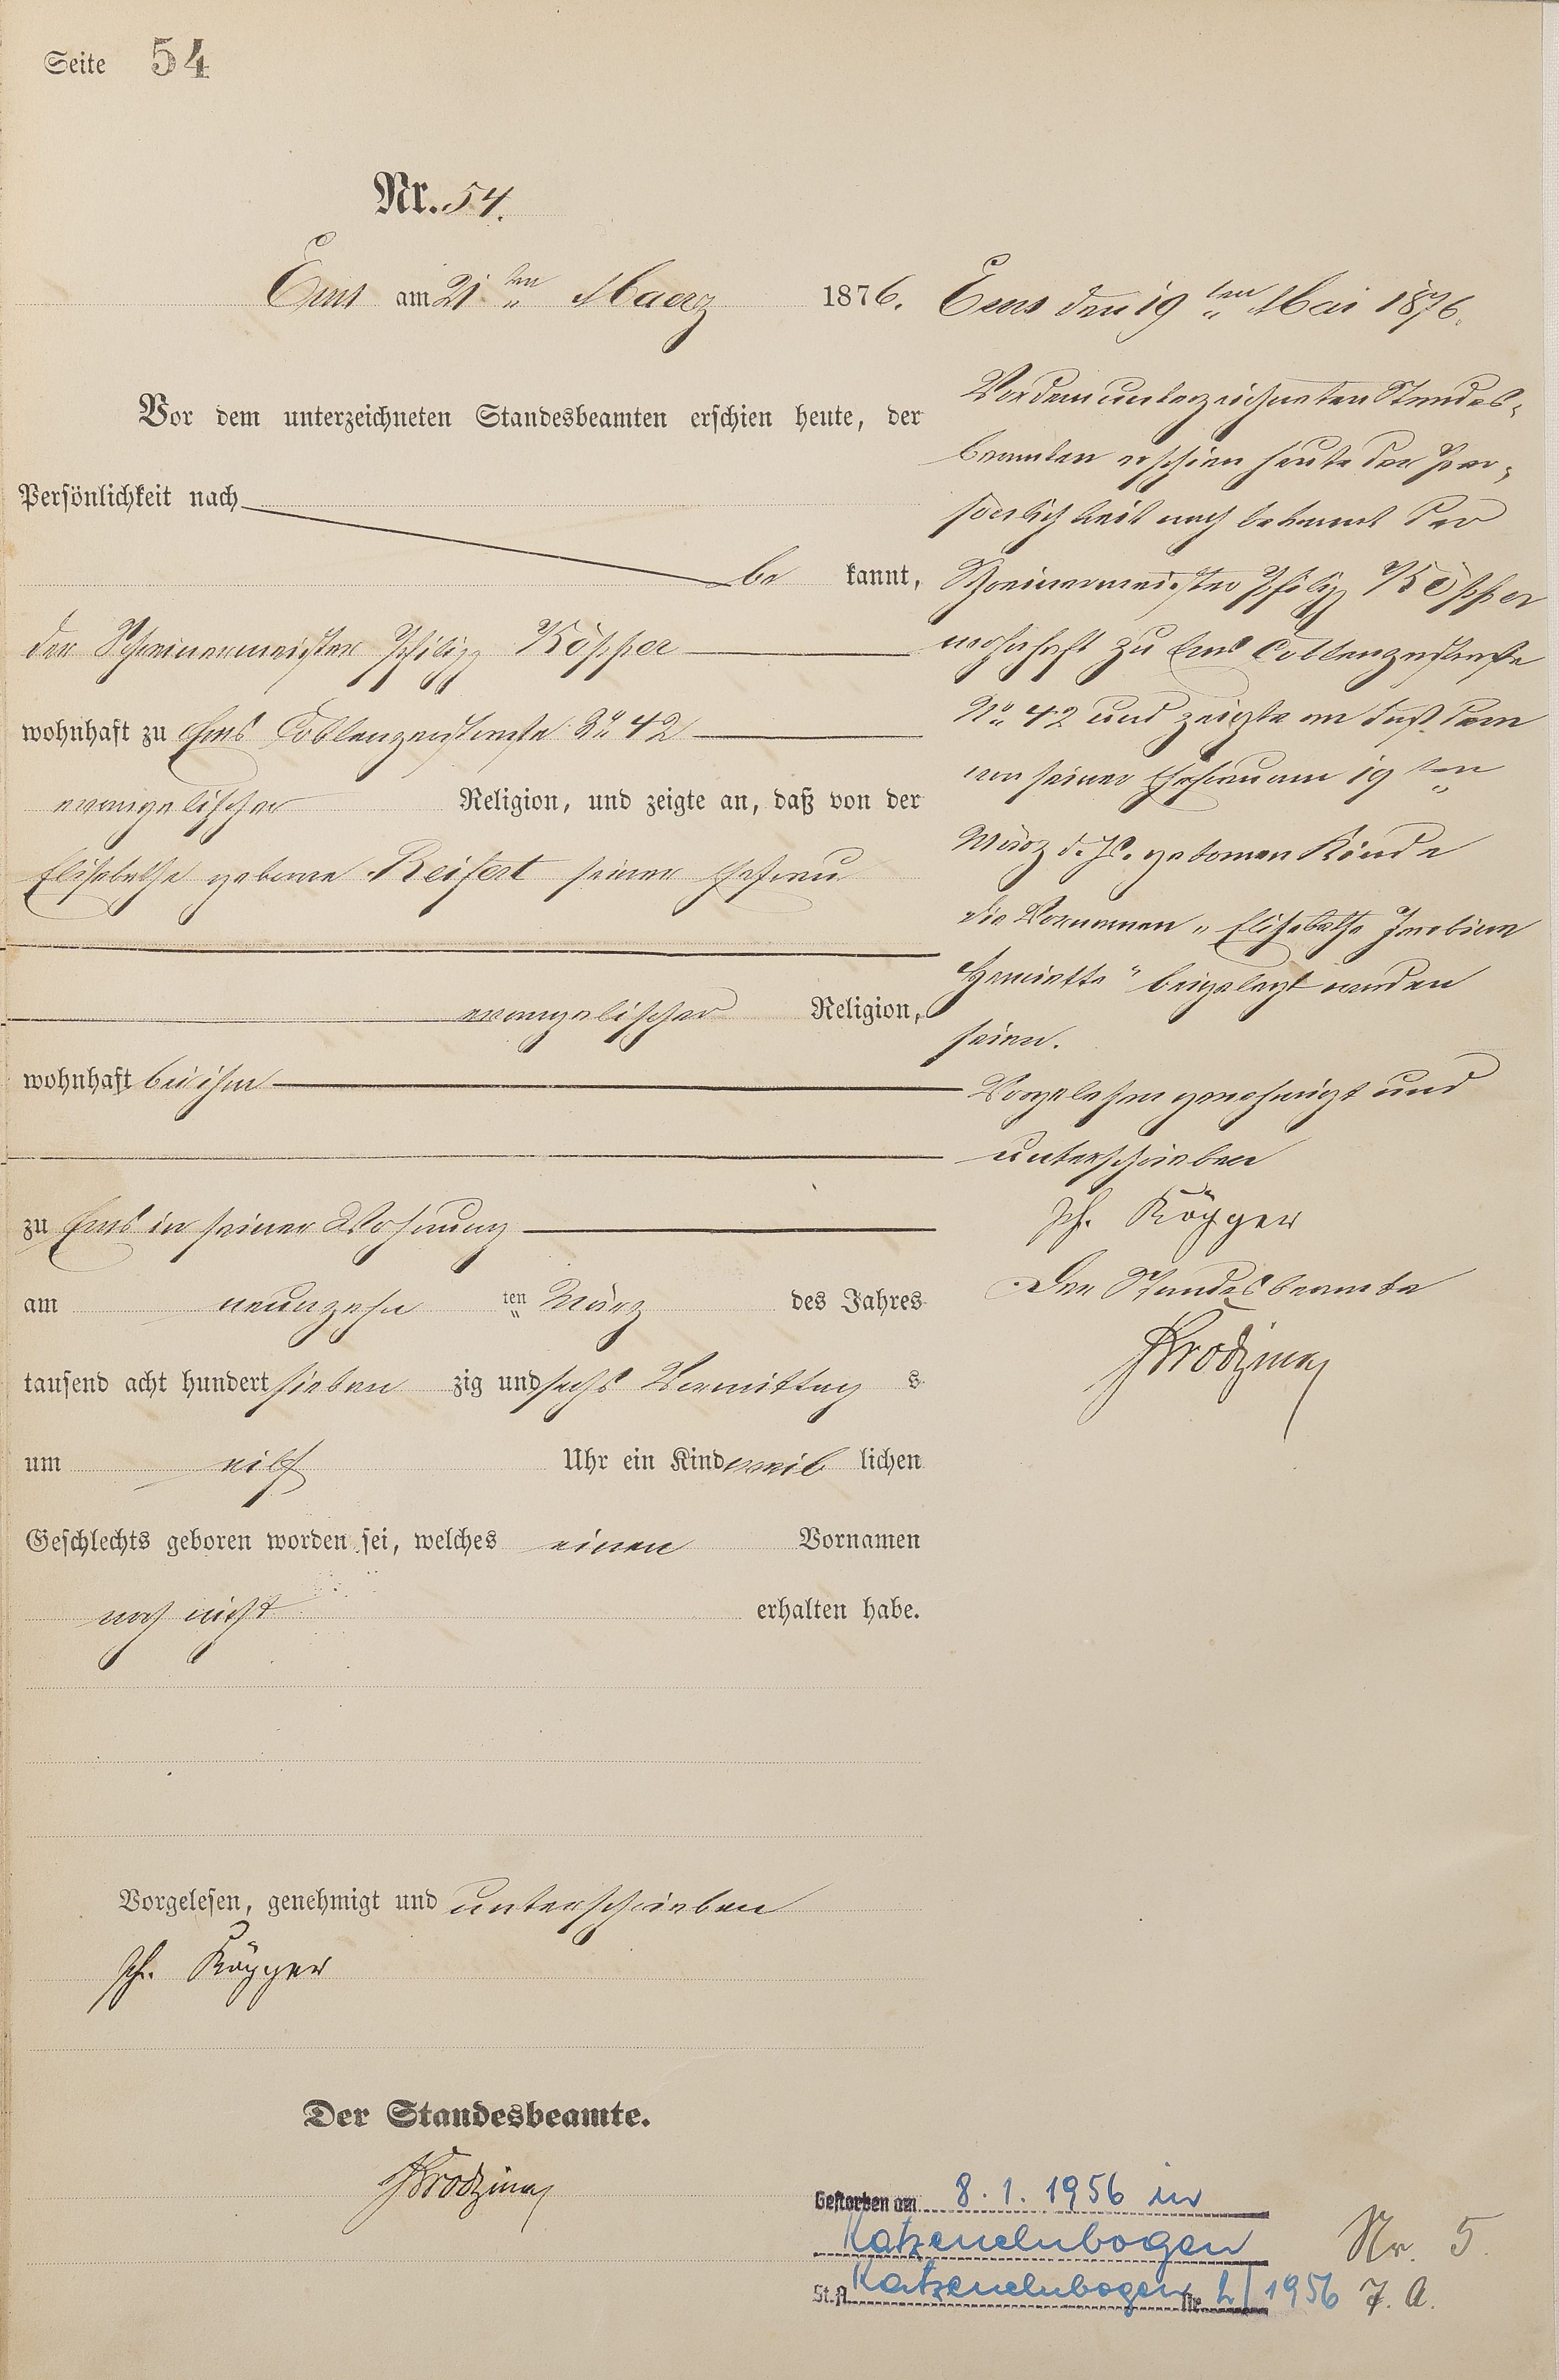 Seite 54
Nr. 54.
Ems am 21ten Maerz 1876.
Vor dem unterzeichneten Standesbeamten erschien heute, der
Persönlichkeit nach
be kannt,
der Schreinermeister Philipp Köpper
wohnhaft zu Ems Coblenzerstraße No 42
evangelischer Religion, und zeigte an, daß von der
Elisabethe geborne Reifert seiner Ehefrau
evangelischer Religion,
wohnhaft bei ihm
zu Ems in seiner Wohnung
am neunzehn ten März des Jahres
tausend acht hundert sieben zig und sechs Vormittag s
um eilf Uhr ein Kind weib lichen
Geschlechts geboren worden sei, welches einen Vornamen
noch nicht erhalten habe.
Vorgelesen, genehmigt und unterschrieben
Ph. Köpper
Der Standesbeamte.
Ems den 19ten Mai 1876.
Vor dem unterzeichneten Standes-
beamten erschien heute der Per-
soenlichkeit nach bekannt der
Schreinermeister Philipp Köpper
wohnhaft zu Ems Coblenzerstraße
No 42 und zeigte an daß dem
von seiner Ehefrau am 19ten
März d. Js. geborenen Kinde
die Vornamen „Elisabethe Jacobine
Henriette" beigelegt worden
seien.
Vorgelesen genehmigt und
unterschrieben
Ph. Köpper
Der Standesbeamte
Gestorben am 8. 1. 1956 in
Katzenelnbogen Nr. 5
St.A. Katzenelnbogen Nr. 2/1956 7. A.